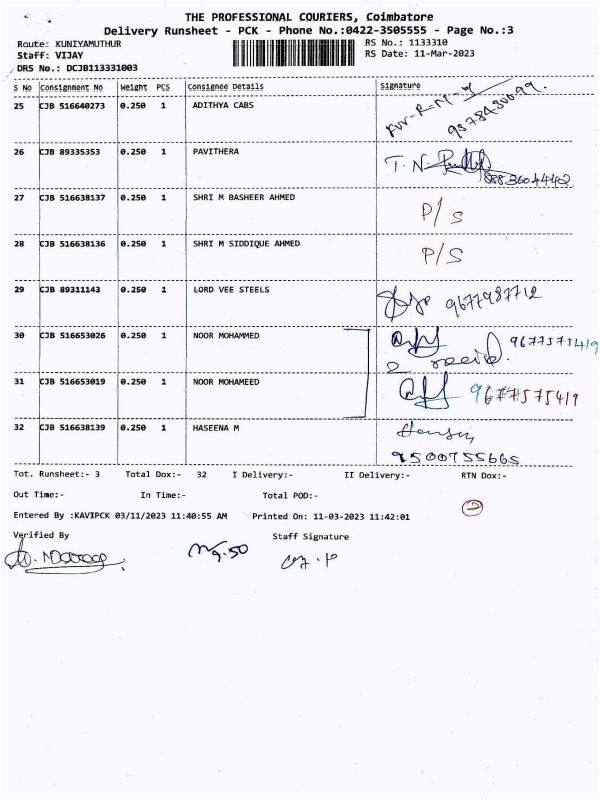 THE PROFESSIONAL COURIERS, Coimbatore
Delivery Runsheet - PCK - Phone No.:0422-3505555 - Page No.:3
Route: KUNIYAMUTHUR RS No.: 1133310
Staff: VIJAY RS Date: 11-Mar-2023
DRS No.: DCJB113331003
S No Consignment No Weight PCS Consignee Details Signature
25 CJB 516640273 0.250 1 ADITHYA CABS
26 CJB 89335353 0.250 1 PAVITHERA T. N.
8883604442
27 CJB 516638137 0.250 1 SHRI M BASHEER AHMED P/S
28 CJB 516638136 0.250 1 SHRI M SIDDIQUE AHMED P/S
29 CJB 89311143 0.250 1 LORD VEE STEELS 9677987712
30 CJB 516653026 0.250 1 NOOR MOHAMMED 9677575419
31 CJB 516653019 0.250 1 NOOR MOHAMEED 9677575419
32 CJB 516638139 0.250 1 HASEENA M
9500755665
Tot. Runsheet:- 3 Total Dox:- 32 I Delivery:- II Delivery:- RTN Dox:-
Out Time:- In Time:- Total POD:-
Entered By :KAVIPCK 03/11/2023 11:40:55 AM Printed On: 11-03-2023 11:42:01
Verified By Staff Signature